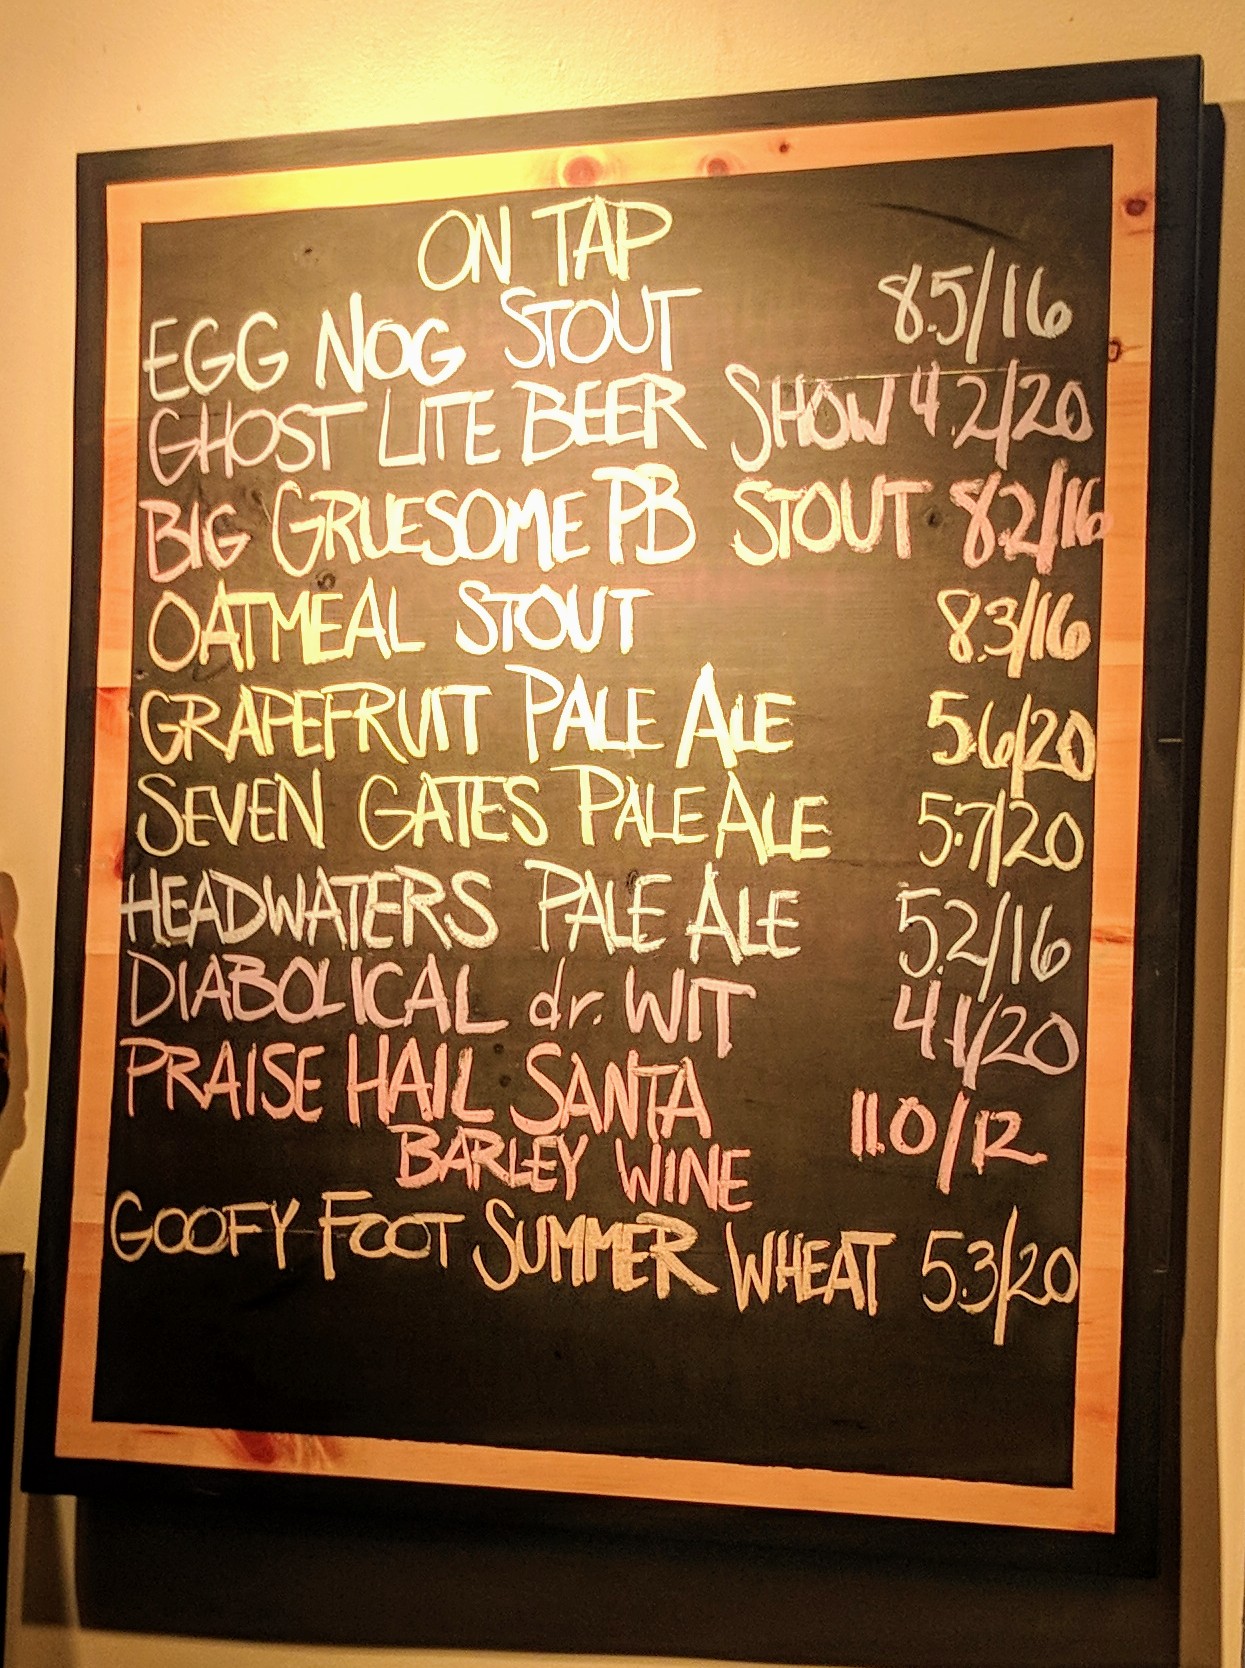 ON TAP
EGG NOG STOUT 8.5/16
GHOST LITE BEER SHOW 4.2/20
BIG GRUESOME PB STOUT 8.2/16
OATMEAL STOUT 8.3/16
GRAPEFRUIT PALE ALE 5.6/20
SEVEN GATES PALE ALE 5.7/20
HEADWATERS PALE ALE 5.2/16
DIABOLICAL dr. WIT 4.1/20
PRAISE HAIL SANTA 11.0/12
BARLEY WINE
GOOFY FOOT SUMMER WHEAT 5.3/20